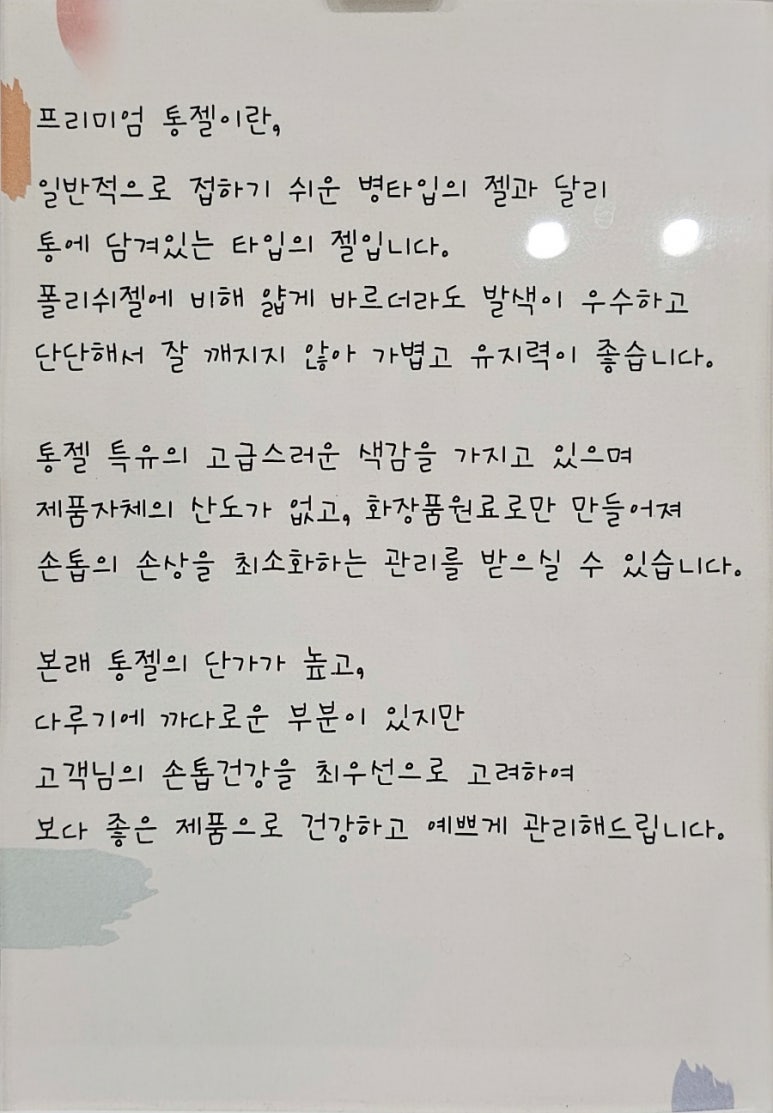 프리미엄 통젤이란,
일반적으로 접하기 쉬운 병타입의 젤과 달리
통에 담겨있는 타입의 젤입니다.
폴리쉬젤에 비해 얇게 바르더라도 발색이 우수하고
단단해서 잘 깨지지 않아 가볍고 유지력이 좋습니다.
통젤 특유의 고급스러운 색감을 가지고 있으며
제품자체의 산도가 없고, 화장품원료로만 만들어져
손톱의 손상을 최소화하는 관리를 받으실 수 있습니다.
본래 통젤의 단가가 높고,
다루기에 까다로운 부분이 있지만
고객님의 손톱건강을 최우선으로 고려하여
보다 좋은 제품으로 건강하고 예쁘게 관리해드립니다.